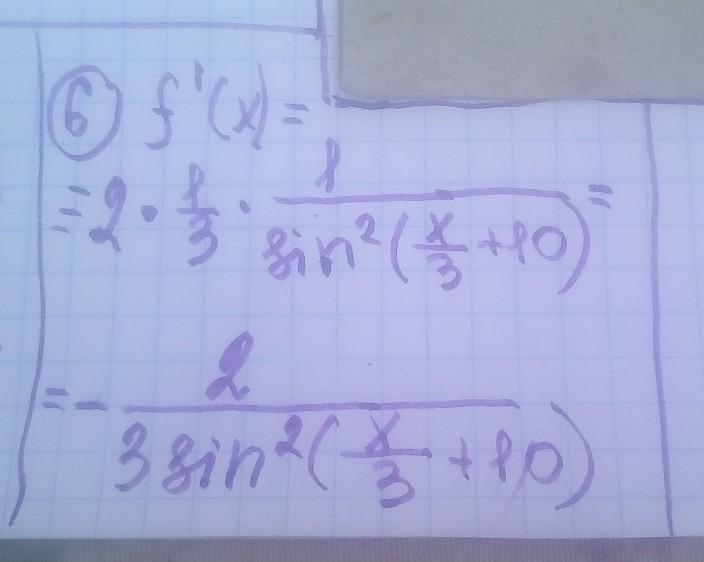 6 f'(x) =
= 2 · 1/3 · 1/sin²(x/3 + 10) =
= - 2/3 sin²(x/3 + 10)